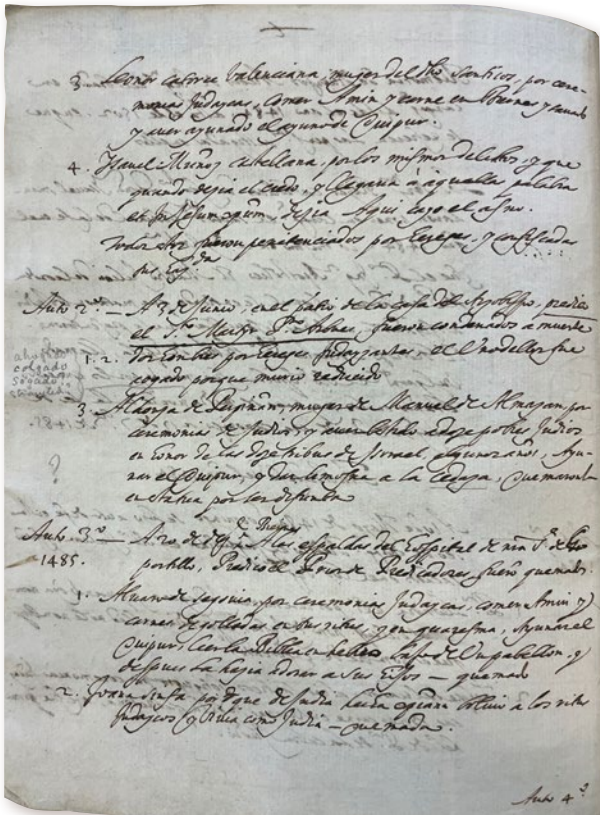 3. Leonor Catorze Valenciana, muger del dho Santicos, por cere-
monias Judaycas, comer Amin y carne en Biernes y savado
y aver ayunado el ayuno de Quipur.
4. Ysavel Muñoz castellana, por los mismos delitos, y que
quando dezia el credo, y llegava à aquella palabra
et in Jesum xpum dezia Aqui cayo el asno.
todos fueron penitenciados por Hereges, y confiscada
su haz.da
Auto 2.º — A 3 de Junio, en el patio, de la casa del Arzobispo, predico
el S.to Martyr P.º Arbues, fueron condenados a muerte
1. 2. dos hombres por hereges Judayzantes, el Uno dellos fue
porque murio reducido
3. Aldonza de Perpiñan, muger de Manuel de Almazan, por
ceremonias de Judios, y aver bestido a doze pobres Judios
en honor de las doze tribus de Israel, algunos años, Ayu-
nar el Quipur, y dar lamosna a la Cedaza, quemaronla
en statua por ser difunta
Auto 3.º — A 20 de A las espaldas del Hospital de nra S.ra de
1485. portillo, Predico el Prior de Predicadores, fuerõ quemados
1. Alvaro de Segovia por ceremonias Judaycas, comer Amin y
carnes degolladas en sus ritus, y en quaresma, Ayunar el
Quipur, leer la Biblia en hebreo baxo de Un pabellon, y
despues la hazia adorar a sus hijos — quemado
2. Juana Sinfa de Judia hecha xp̃iana bolvio a los ritus
Judaycos y bivia como Judia — quemada.
ahorcado
colgado
Auto 4º